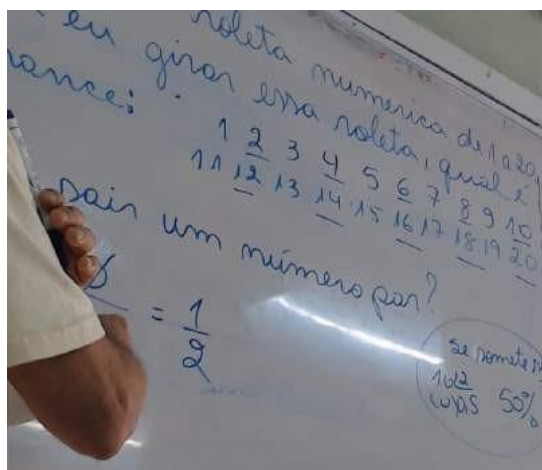 eu
roleta numerica de 1 a 20,
girar essa roleta, qual é
ance:
1 2 3 4 5 6 7 8 9 10
11 12 13 14 15 16 17 18 19 20
sair um número par?
= 1
2
se somete
1 2
50%